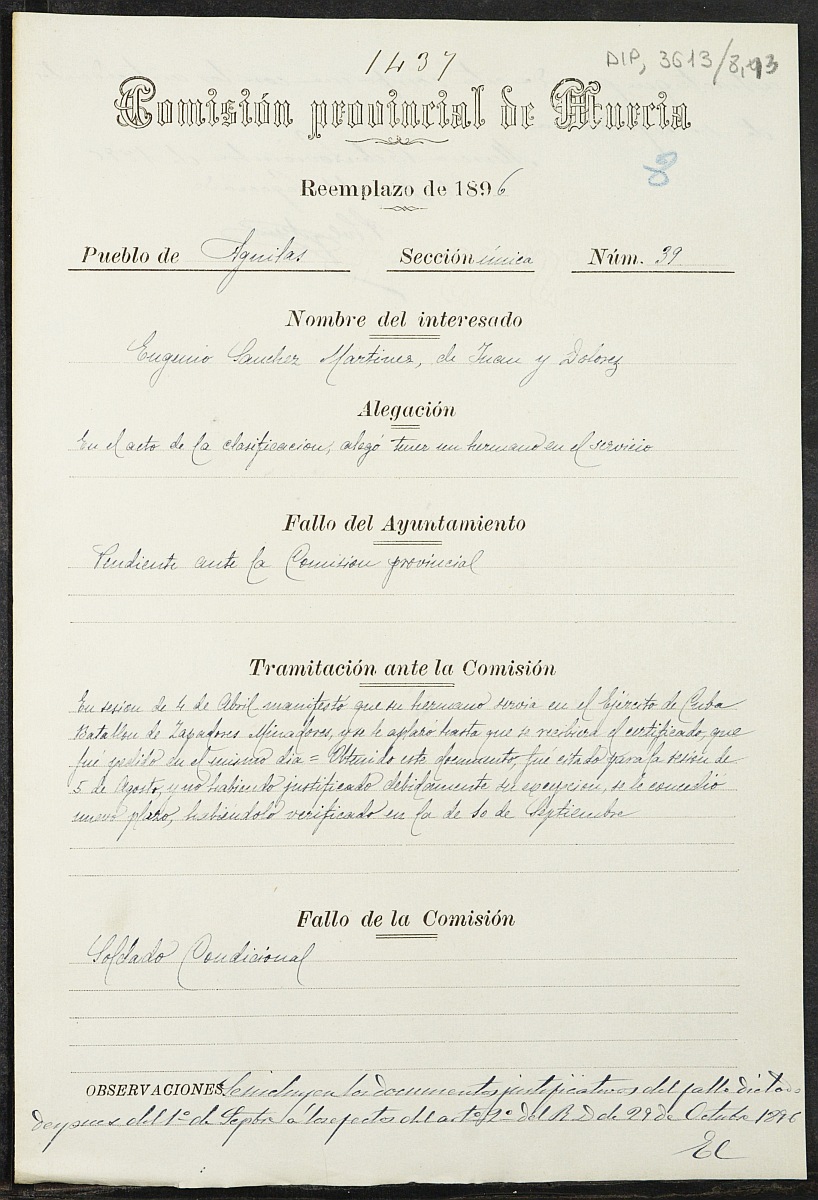 1437
DIP, 3613/8,93
Comisión provincial de Murcia
Reemplazo de 1896
Pueblo de Aguilas Sección única Núm. 39
Nombre del interesado
Eugenio Sanchez Martinez, de Juan y Dolores
Alegación
En el acto de la clasificacion, alegó tener un hermano en el servicio
Fallo del Ayuntamiento
Pendiente ante la Comision provincial
Tramitación ante la Comisión
En sesion de 4 de Abril manifestó que su hermano servia en el Ejército de Cuba
Batallon de Zapadores Minadores, y se le aplazó hasta que se recibiera el certificado, que
fué pedido en el mismo dia = Obtenido este documento, fué citado para la sesion de
5 de Agosto, y no habiendo justificado debidamente su excepcion, se le concedió
nuevo plazo, habiéndolo verificado en la de 10 de Septiembre
Fallo de la Comisión
Soldado Condicional
OBSERVACIONES Se incluyen los documentos justificativos del fallo dictado
despues del 1º de Sepbre a los efectos del artº 2º del R D de 29 de Octubre 1896
EC